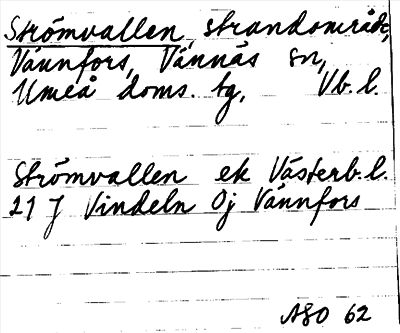 Strömvallen, strandområde,
Vännfors, Vännäs sn,
Umeå doms. tg, Vb. l.
Strömvallen ek Västerb. l.
21 J Vindeln 0j Vännfors
ASO 62